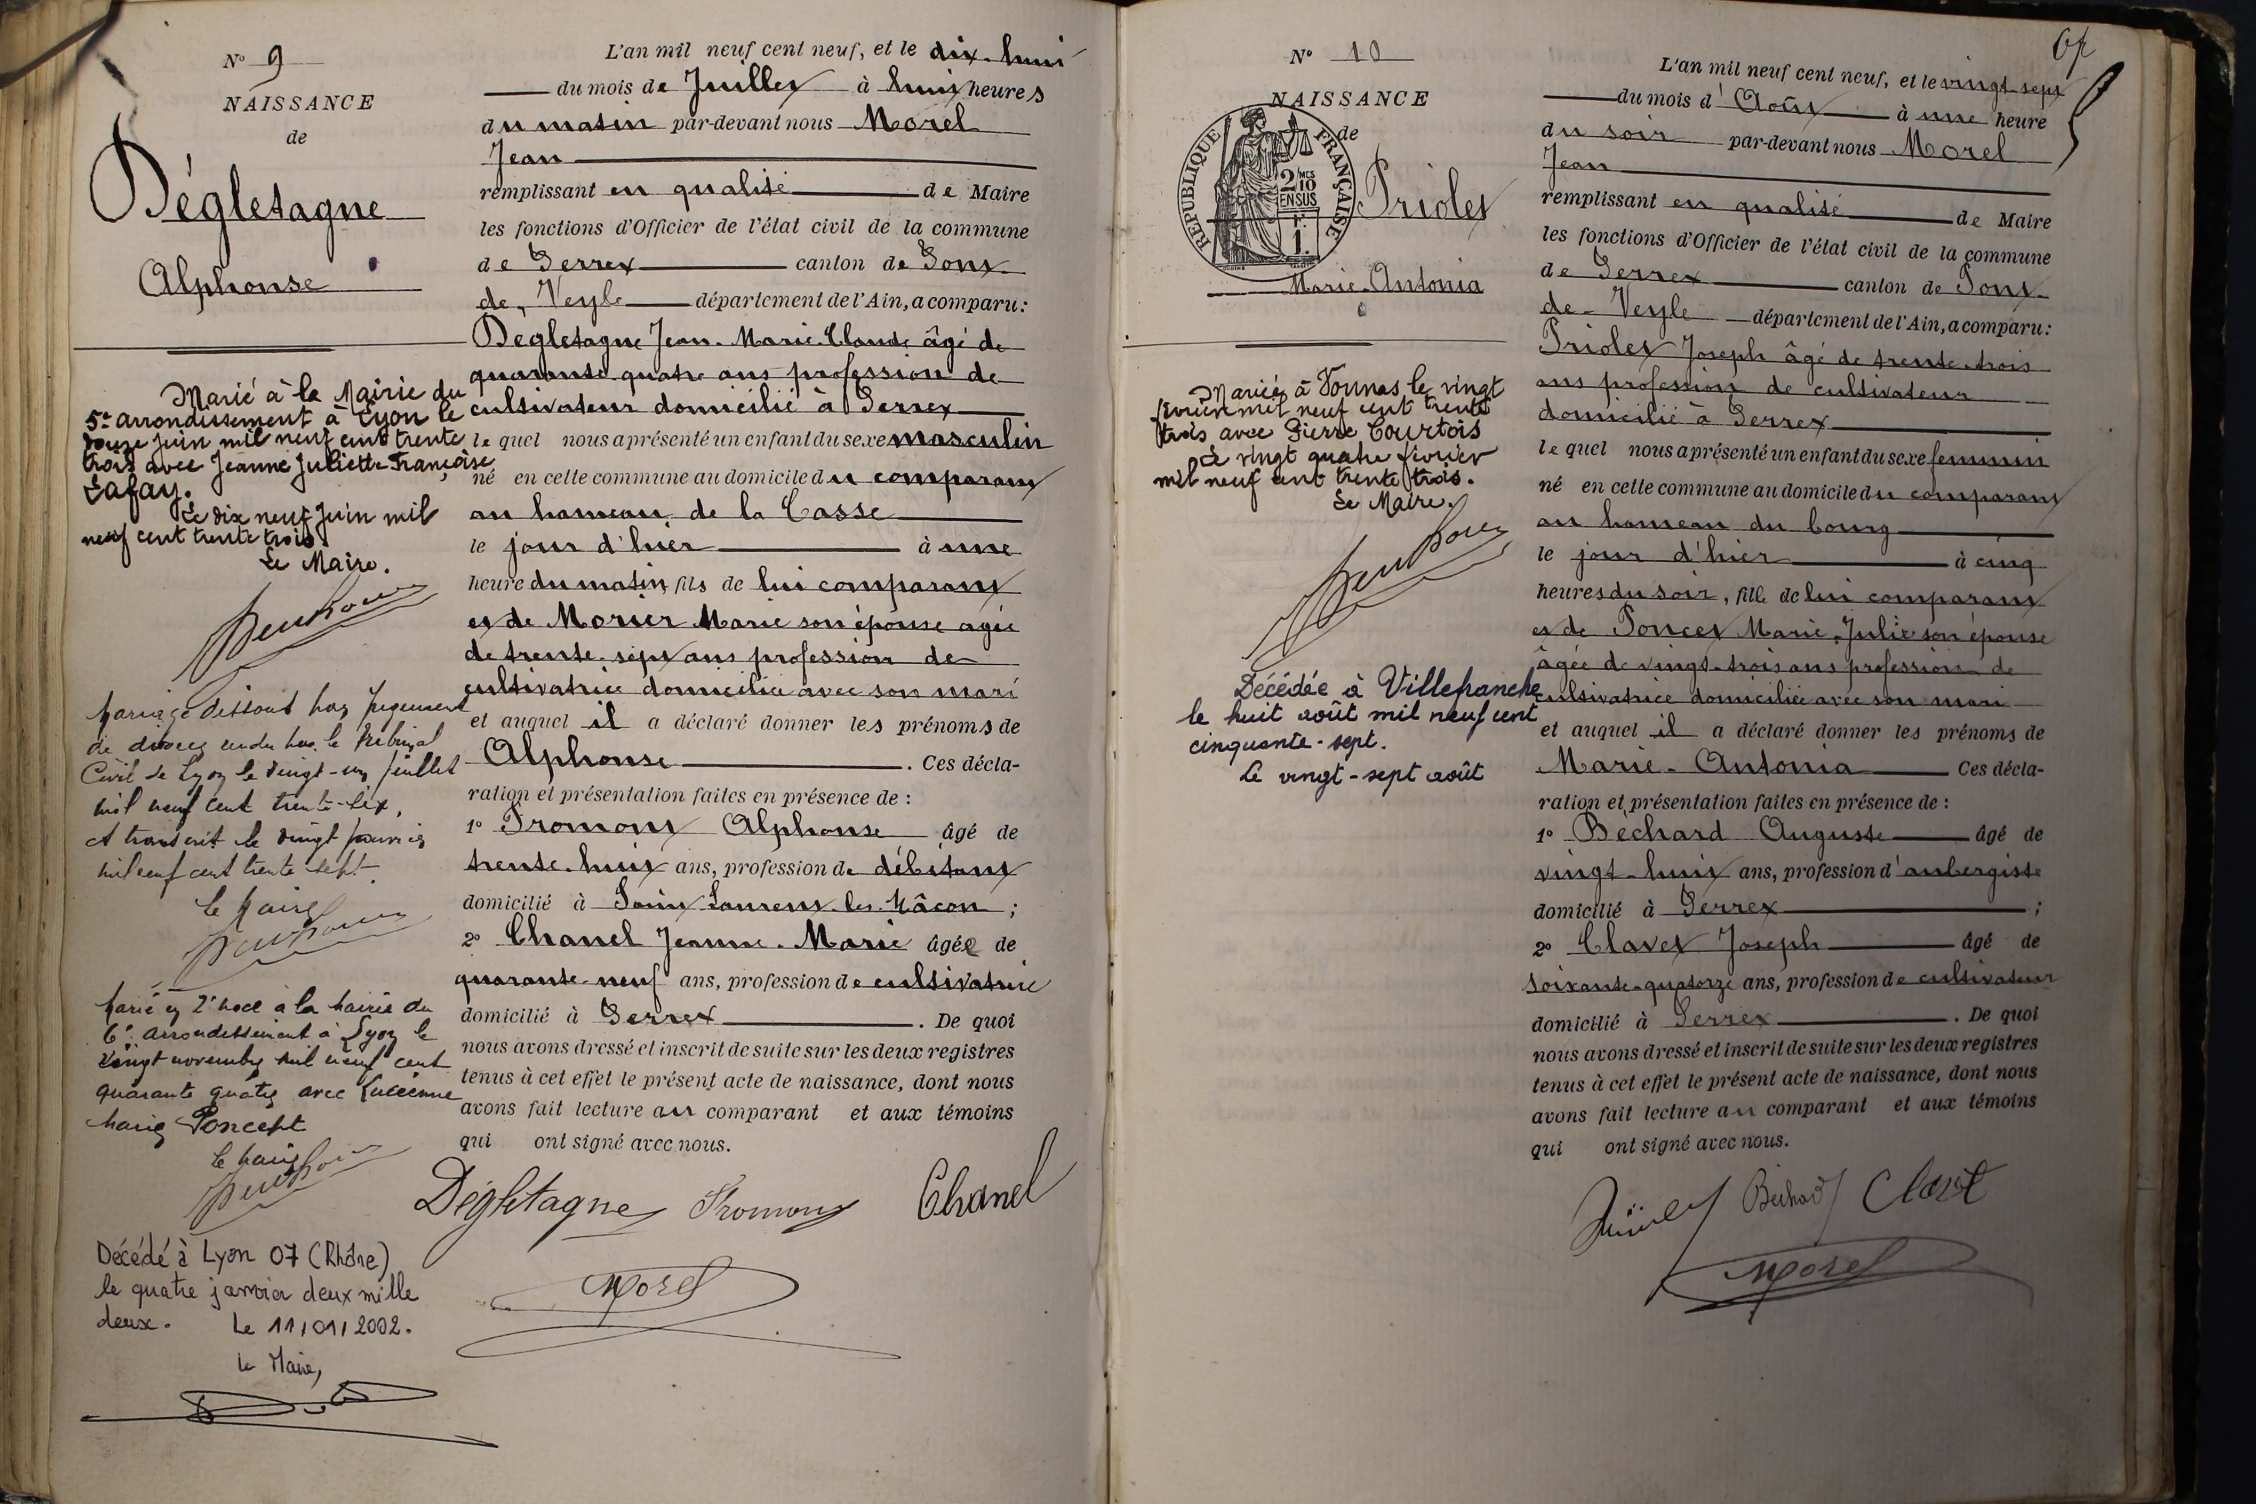 N° 9
NAISSANCE
de
Dégletagne
Alphonse
Marié à la Mairie du
5e arrondissement à Lyon le
douze juin mil neuf cent trente
trois avec Jeanne Juliette Françoise
Lafay.
Le dix neuf juin mil
neuf cent trente trois
Le Maire.
Mariage dissout par jugement
de divorce rendu par le Tribunal
Civil de Lyon le vingt-un juillet
mil neuf cent trente-six,
et transcrit le vingt janvier
mil neuf cent trente sept.
Le Maire
Marié en 2e noce à la Mairie du
6e arrondissement à Lyon le
vingt novembre mil neuf cent
quarante quatre avec Lucienne
Marie Poncept
Le Maire
Décédé à Lyon 07 (Rhône)
le quatre janvier deux mille
deux. Le 11/01/2002.
Le Maire,
L'an mil neuf cent neuf, et le dix-huit
du mois de Juillet à huit heures
du matin par-devant nous Morel
Jean
remplissant en qualité de Maire
les fonctions d'Officier de l'état civil de la commune
de Perrex canton de Pont-
de-Veyle département de l'Ain, a comparu:
Degletagne Jean-Marie-Claude âgé de
quarante-quatre ans profession de
cultivateur domicilié à Perrex
le quel nous a présenté un enfant du sexe masculin
né en cette commune au domicile du comparant
au hameau de la Casse
le jour d'hier à une
heure du matin, fils de lui comparant
et de Morier Marie son épouse agée
de trente-sept ans profession de
cultivatrice domiciliée avec son mari
et auquel il a déclaré donner les prénoms de
Alphonse. Ces décla-
ration et présentation faites en présence de :
1° Fromont Alphonse âgé de
trente-huit ans, profession de débitant
domicilié à Saint-Laurent-les-Mâcon ;
2° Chanel Jeanne-Marie âgée de
quarante-neuf ans, profession de cultivatrice
domicilié à Perrex. De quoi
nous avons dressé et inscrit de suite sur les deux registres
tenus à cet effet le présent acte de naissance, dont nous
avons fait lecture au comparant et aux témoins
qui ont signé avec nous.
Dégletagne Fromont Chanel
Morel
N° 10
NAISSANCE
de
REPUBLIQUE FRANÇAISE
2/10MES
EN SUS
1F.
Priolet
Marie-Antonia
Mariée à Vonnas le vingt
février mil neuf cent trente
trois avec Pierre Courtois
Le vingt quatre février
mil neuf cent trente trois.
Le Maire.
Décédée à Villefranche
le huit août mil neuf cent
cinquante-sept.
Le vingt-sept août
67
L'an mil neuf cent neuf, et le vingt-sept
du mois d'Août à une heure
du soir par-devant nous Morel
Jean
remplissant en qualité de Maire
les fonctions d'Officier de l'état civil de la commune
de Perrex canton de Pont-
de-Veyle département de l'Ain, a comparu:
Priolet Joseph âgé de trente-trois
ans profession de cultivateur
domicilié à Perrex
le quel nous a présenté un enfant du sexe feminin
né en cette commune au domicile du comparant
au hameau du bourg
le jour d'hier à cinq
heures du soir, fille de lui comparant
et de Poncet Marie-Julie son épouse
âgée de vingt-trois ans profession de
cultivatrice domiciliée avec son mari
et auquel il a déclaré donner les prénoms de
Marie-Antonia Ces décla-
ration et présentation faites en présence de :
1° Béchard Auguste âgé de
vingt-huit ans, profession d'aubergiste
domicilié à Perrex ;
2° Clavet Joseph âgé de
soixante-quatorze ans, profession de cultivateur
domicilié à Perrex. De quoi
nous avons dressé et inscrit de suite sur les deux registres
tenus à cet effet le présent acte de naissance, dont nous
avons fait lecture au comparant et aux témoins
qui ont signé avec nous.
Béchard Clavet
Morel